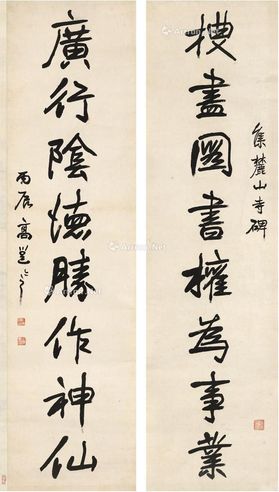 搜盡圖書權為事業
集麓山寺碑
廣行陰德勝作神仙
丙辰高邕之